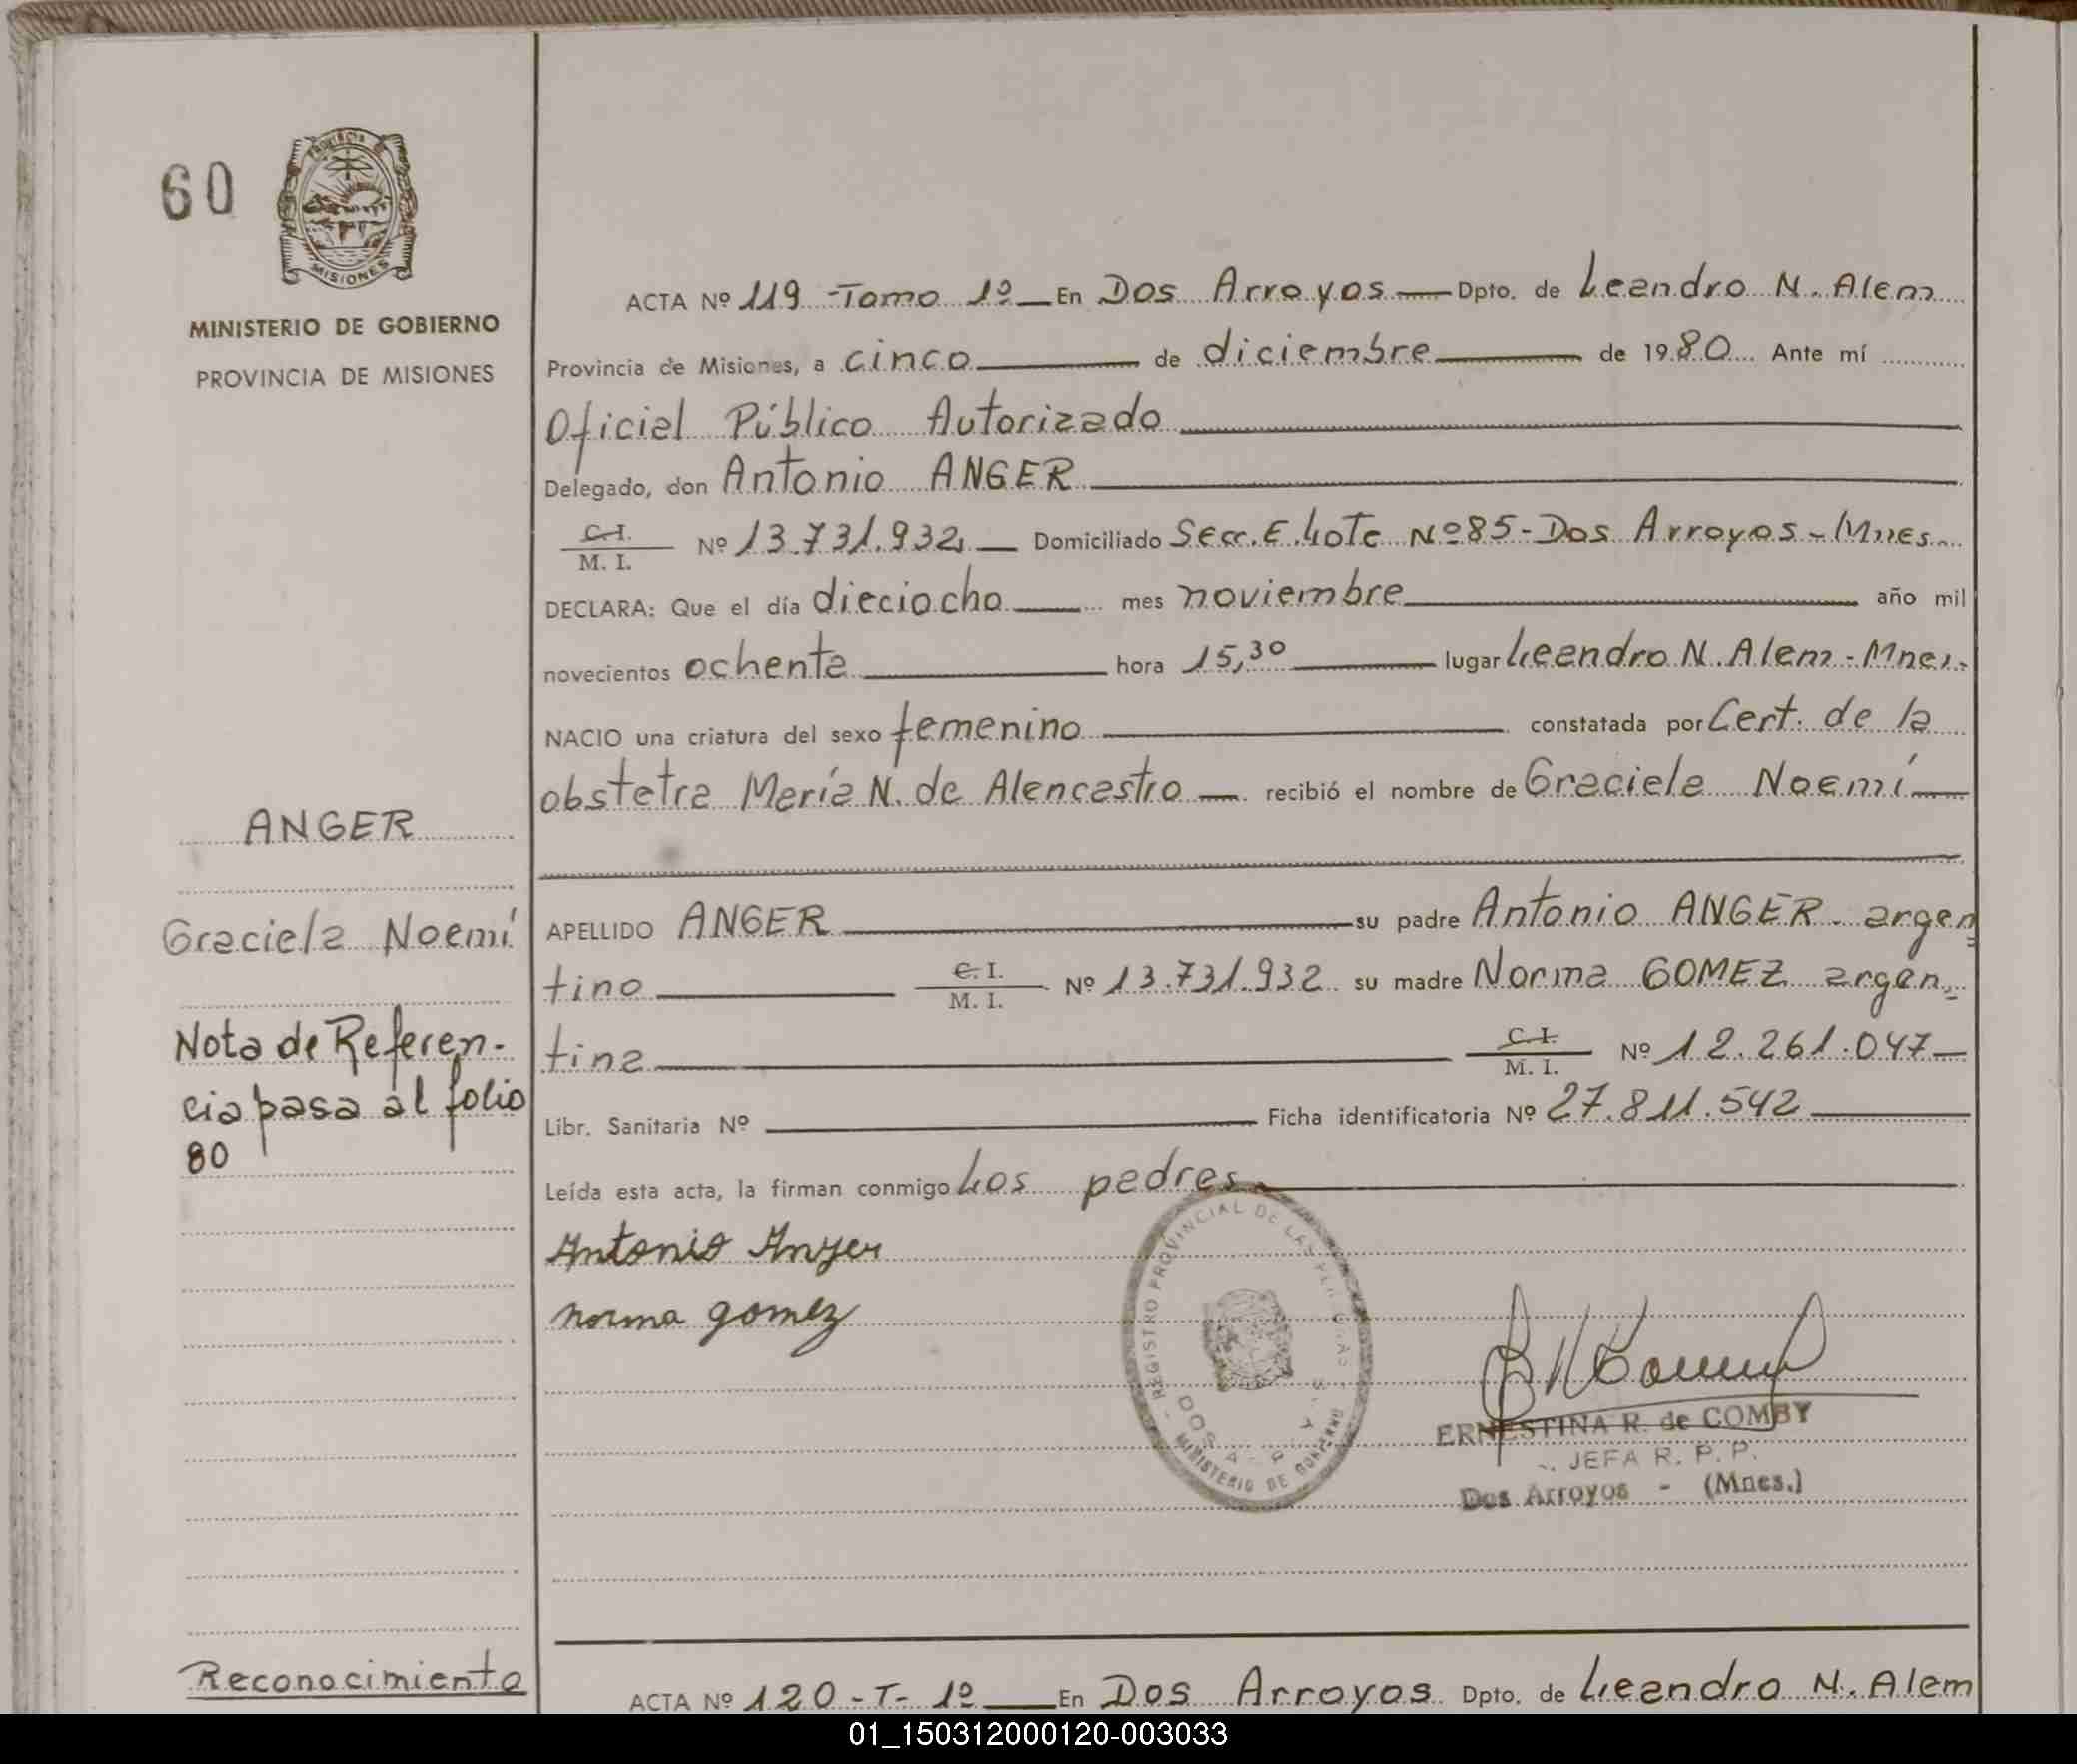 60
PROVINCIA DE
MISIONES
MINISTERIO DE GOBIERNO
PROVINCIA DE MISIONES
ACTA Nº 119 -Tomo 1º En Dos Arroyos Dpto. de Leandro N. Alem
Provincia de Misiones, a cinco de diciembre de 1980 Ante mí
Oficial Público Autorizado
Delegado, don Antonio ANGER
C.I.
M. I. Nº 13.731.932 Domiciliado Secc. E. Lote Nº 85 - Dos Arroyos - Mnes.
DECLARA: Que el día dieciocho mes noviembre año mil
novecientos ochenta hora 15,30 lugar Leandro N. Alem - Mnes.
NACIO una criatura del sexo femenino constatada por Cert. de la
obstetra María N. de Alencastro recibió el nombre de Graciela Noemí
ANGER
Graciela Noemí
APELLIDO ANGER su padre Antonio ANGER - argen
tino C.I. M. I. Nº 13.731.932 su madre Norma GOMEZ argen
tina C.I. M. I. Nº 12.261.047
Nota de Referen-
cia pasa al folio
80
Libr. Sanitaria Nº Ficha identificatoria Nº 27.811.542
Leída esta acta, la firman conmigo Los padres
Antonio Anger
norma gomez
REGISTRO PROVINCIAL DE LAS PERSONAS
DOS
MINISTERIO DE GOBIERNO
ERNESTINA R. de COMBY
JEFA R. P. P.
Dos Arroyos - (Mnes.)
Reconocimiento
ACTA Nº 120 - T - 1º En Dos Arroyos Dpto. de Leandro N. Alem
01_150312000120-003033